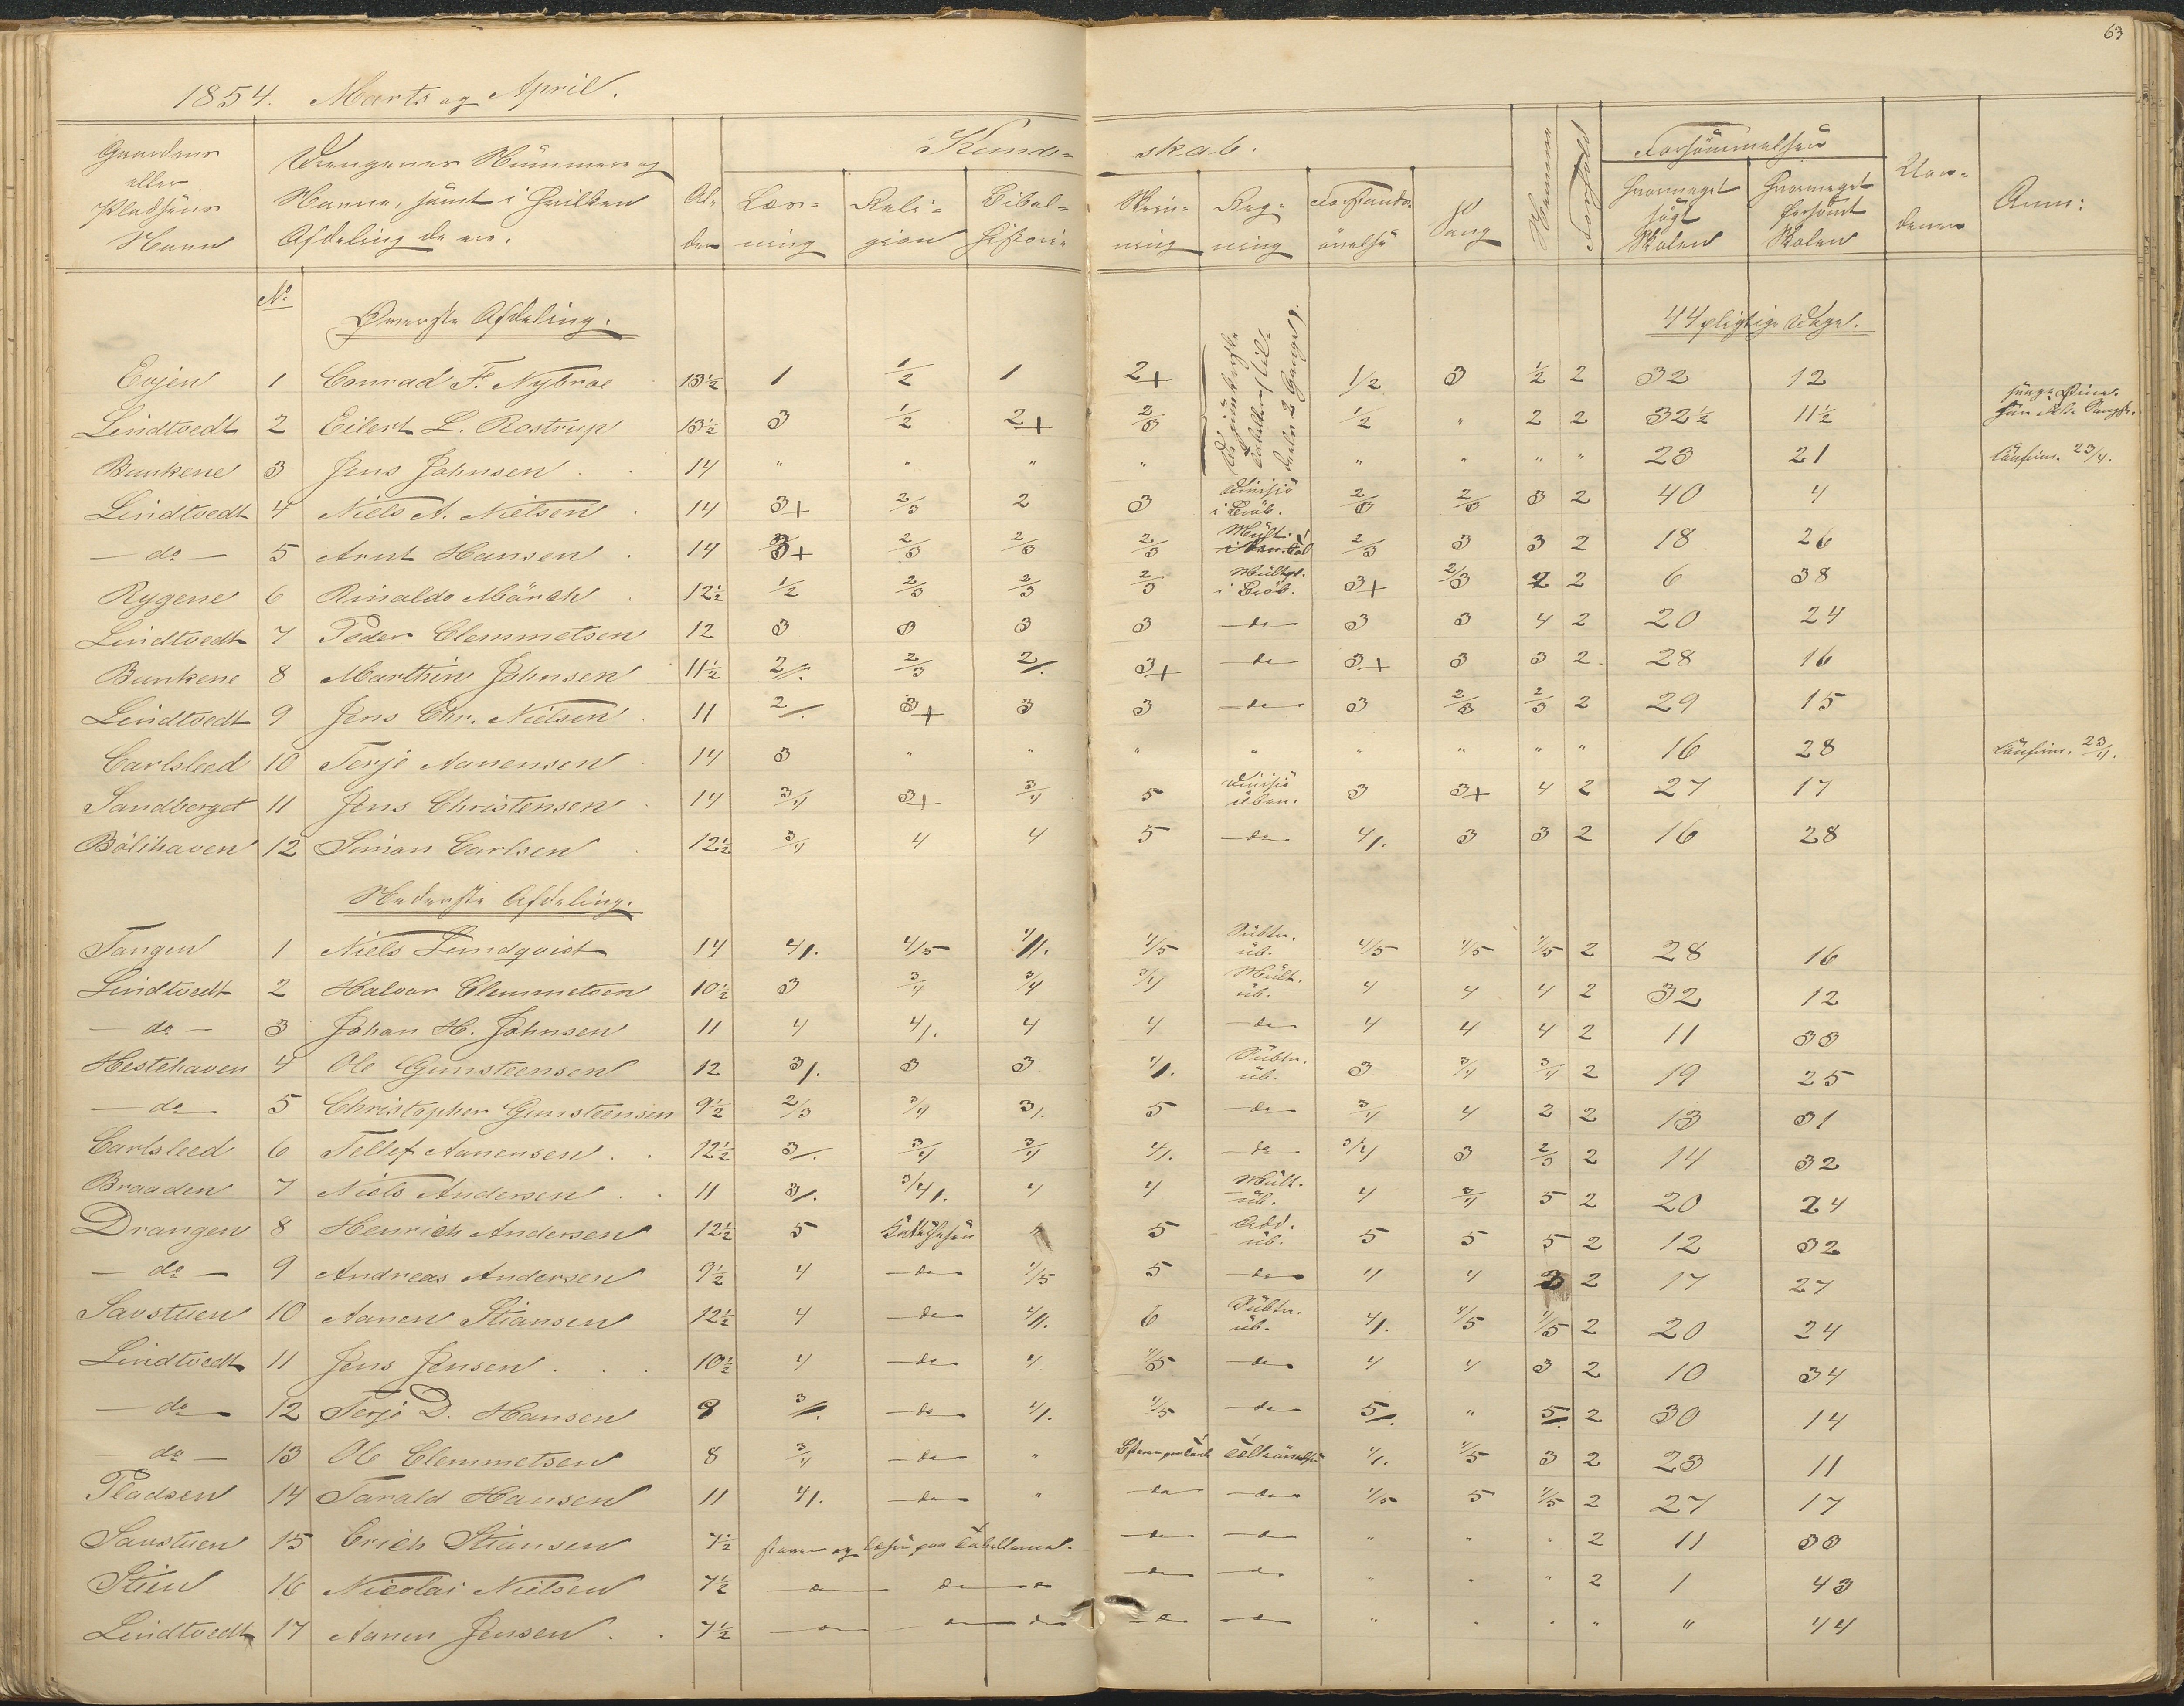 63
1854. Marts og April.
Gaardens eller Pladsens Navn | Drengenes Nummer og Navne, samt i hvilken Afdeling de ere. | Alder | Kundskab. | Forhold | Forsömmelser | Anm:
Læsning | Religion | Bibelhistorie | Skrivning | Regning | Forstandsövelse | Sang | hvormeget sögt Skolen | hvormeget forsömt Skolen
No
Øverste Afdeling. 44 pligtige Dage.
Evjen 1 Conrad F. Nybroe 13½ 1 ½ 1 2+ ½ 3 ½ 2 32 12
Lindtvedt 2 Eilert L. Rostrup 13½ 3 ½ 2+ 2/3 ½ " 2 2 32½ 11½
Bunkene 3 Jens Johnsen 14 " " " " " " " " 23 21 Confirm. 23/4.
Lindtvedt 4 Niels A. Nielsen 14 3+ 2/3 2 3 Divisio i Bröb. 2/3 2/3 3 2 40 4
do 5 Arnt Hansen 14 3+ 2/3 2/3 2/3 2/3 3 3 2 18 26
Rygene 6 Rinaldo Mörch 12½ ½ 2/3 2/3 2/3 Multipl. i Bröb. 3+ 2/3 2 2 6 38
Lindtvedt 7 Peder Clemmetsen 12 3 3 3 3 do 3 3 4 2 20 24
Bunkene 8 Marthin Johnsen 11½ 2/. 2/3 2/. 3+ do 3+ 3 3 2 28 16
Lindtvedt 9 Jens Chr. Nielsen 11 2/. 3+ 3 3 do 3 2/3 2/3 2 29 15
Carlsleed 10 Terje Aanensen 14 3 " " " " " " " " 16 28 Confirm. 23/4.
Sandberget 11 Jens Christensen 14 3/4 3+ 3/4 5 Divisio üben. 3 3+ 4 2 27 17
Bölihaven 12 Simon Carlsen 12½ 3/4 4 4 5 do 4/. 3 3 2 16 28
Nederste Afdeling.
Tangen 1 Niels Lundqvist 14 4/. 4/5 4/. 4/5 Subtr. üb. 4/5 4/5 4/5 2 28 16
Lindtvedt 2 Halvor Clemmetsen 10½ 3 3/4 3/4 3/4 Mult. üb. 4 4 4 2 32 12
do 3 Johan H. Johnsen 11 4 4/. 4 4 do 4 4 4 2 11 33
Hestehaven 4 Ole Gunsteensen 12 3/. 3 3 4/. Subtr. üb. 3 3/4 3/4 2 19 25
do 5 Christopher Gunsteensen 9½ 2/3 3/4 3/. 5 do 3/4 4 2 2 13 31
Carlsleed 6 Tellef Aanensen 12½ 3/. 3/4 3/4 4/. do 3/4 3 2/3 2 14 32
Braaden 7 Niels Andersen 11 3/. 3/4/. 4 4 Mult. üb. 4 3/4 5 2 20 24
Drangen 8 Henrich Andersen 12½ 5 " 5 Add. üb. 5 5 5 2 12 32
do 9 Andreas Andersen 9½ 4 do 4/5 5 do 4 4 3 2 17 27
Saustuen 10 Aanen Stiansen 12½ 4 do 4/. 6 Subtr. üb. 4/. 4/5 4/5 2 20 24
Lindtvedt 11 Jens Jensen 10½ 4 do 4 4/5 do 4 4 3 2 10 34
do 12 Terje D. Hansen 9 3/. do 4/. 4/5 do 5/. " 5/. 2 30 14
do 13 Ole Clemmetsen 8 3/4 do " 4/. 4/5 3 2 23 11
Pladsen 14 Tarald Hansen 11 4/. do " do do 4/5 5 4/5 2 27 17
Saustuen 15 Erich Stiansen 7½ staver og do do " " " 2 11 33
Stien 16 Nicolai Nielsen 7½ do do do do " " " 2 1 43
Lindtvedt 17 Aanen Jensen 7½ do do do do " " " " " 44